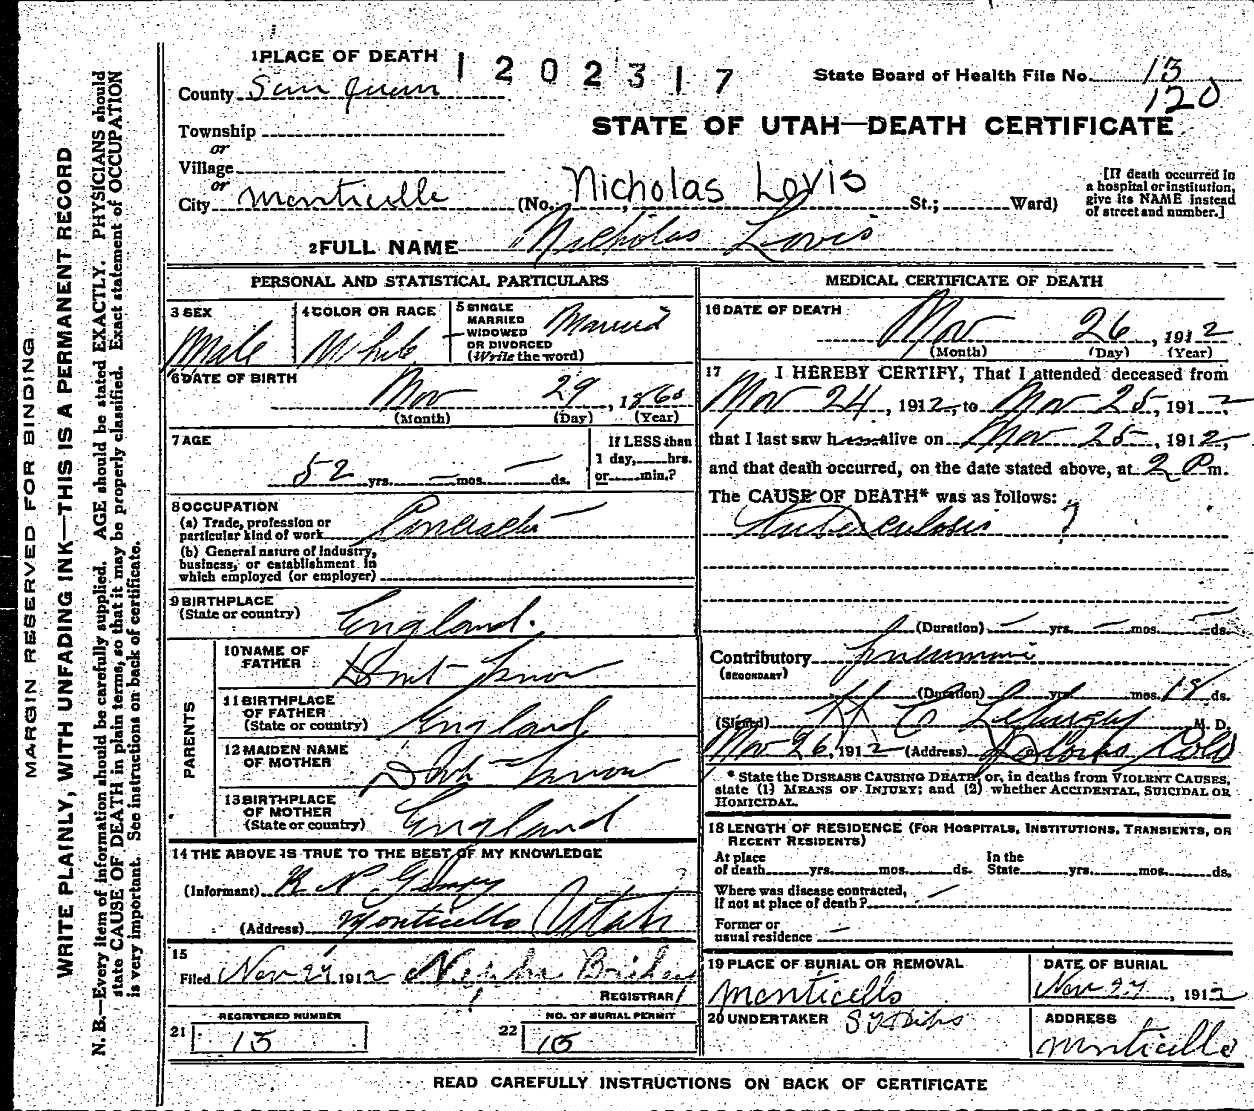 MARGIN RESERVED FOR BINDING
WRITE PLAINLY, WITH UNFADING INK—THIS IS A PERMANENT RECORD
N. B.—Every item of information should be carefully supplied. AGE should be stated EXACTLY. PHYSICIANS should
state CAUSE OF DEATH in plain terms, so that it may be properly classified. Exact statement of OCCUPATION
is very important. See instructions on back of certificate.
1 PLACE OF DEATH
1 2 0 2 3 1 7
State Board of Health File No. 13
120
County San Juan
STATE OF UTAH—DEATH CERTIFICATE
Township
or
Village
or
City Monticello (No. Nicholas Lovis St.; Ward)
[If death occurred in
a hospital or institution,
give its NAME instead
of street and number.]
2 FULL NAME Nicholas Lovis
PERSONAL AND STATISTICAL PARTICULARS
3 SEX
Male
4 COLOR OR RACE
White
5 SINGLE
MARRIED
WIDOWED
OR DIVORCED
(Write the word)
Married
6 DATE OF BIRTH
Nov 29, 1860
(Month) (Day) (Year)
7 AGE
52 yrs. — mos. — ds.
If LESS than
1 day, hrs.
or min.?
8 OCCUPATION
(a) Trade, profession or
particular kind of work
(b) General nature of industry,
business, or establishment in
which employed (or employer)
9 BIRTHPLACE
(State or country)
England.
PARENTS
10 NAME OF
FATHER
Dont Know
11 BIRTHPLACE
OF FATHER
(State or country)
England
12 MAIDEN NAME
OF MOTHER
Dont Know
13 BIRTHPLACE
OF MOTHER
(State or country)
England
14 THE ABOVE IS TRUE TO THE BEST OF MY KNOWLEDGE
(Informant)
(Address) Monticello Utah
15
Filed Nov 27, 1912
REGISTRAR
REGISTERED NUMBER
21 13
NO. OF BURIAL PERMIT
22 13
MEDICAL CERTIFICATE OF DEATH
16 DATE OF DEATH
Nov 26, 1912
(Month) (Day) (Year)
17 I HEREBY CERTIFY, That I attended deceased from
Nov 24, 1912, to Nov 25, 1912,
that I last saw h alive on Nov 25, 1912,
and that death occurred, on the date stated above, at 2 P m.
The CAUSE OF DEATH* was as follows:
Tuberculosis ?
(Duration) — yrs. — mos. — ds.
Contributory
(SECONDARY)
(Duration) yrs. mos. 18 ds.
(Signed) M. D.
Nov 26, 1912 (Address) Dolores Colo
* State the DISEASE CAUSING DEATH, or, in deaths from VIOLENT CAUSES,
state (1) MEANS OF INJURY; and (2) whether ACCIDENTAL, SUICIDAL OR
HOMICIDAL.
18 LENGTH OF RESIDENCE (FOR HOSPITALS, INSTITUTIONS, TRANSIENTS, OR
RECENT RESIDENTS)
At place
of death yrs. mos. ds.
In the
State yrs. mos. ds.
Where was disease contracted,
if not at place of death? —
Former or
usual residence —
19 PLACE OF BURIAL OR REMOVAL
Monticello
DATE OF BURIAL
Nov 27, 1912
20 UNDERTAKER
ADDRESS
Monticello
READ CAREFULLY INSTRUCTIONS ON BACK OF CERTIFICATE